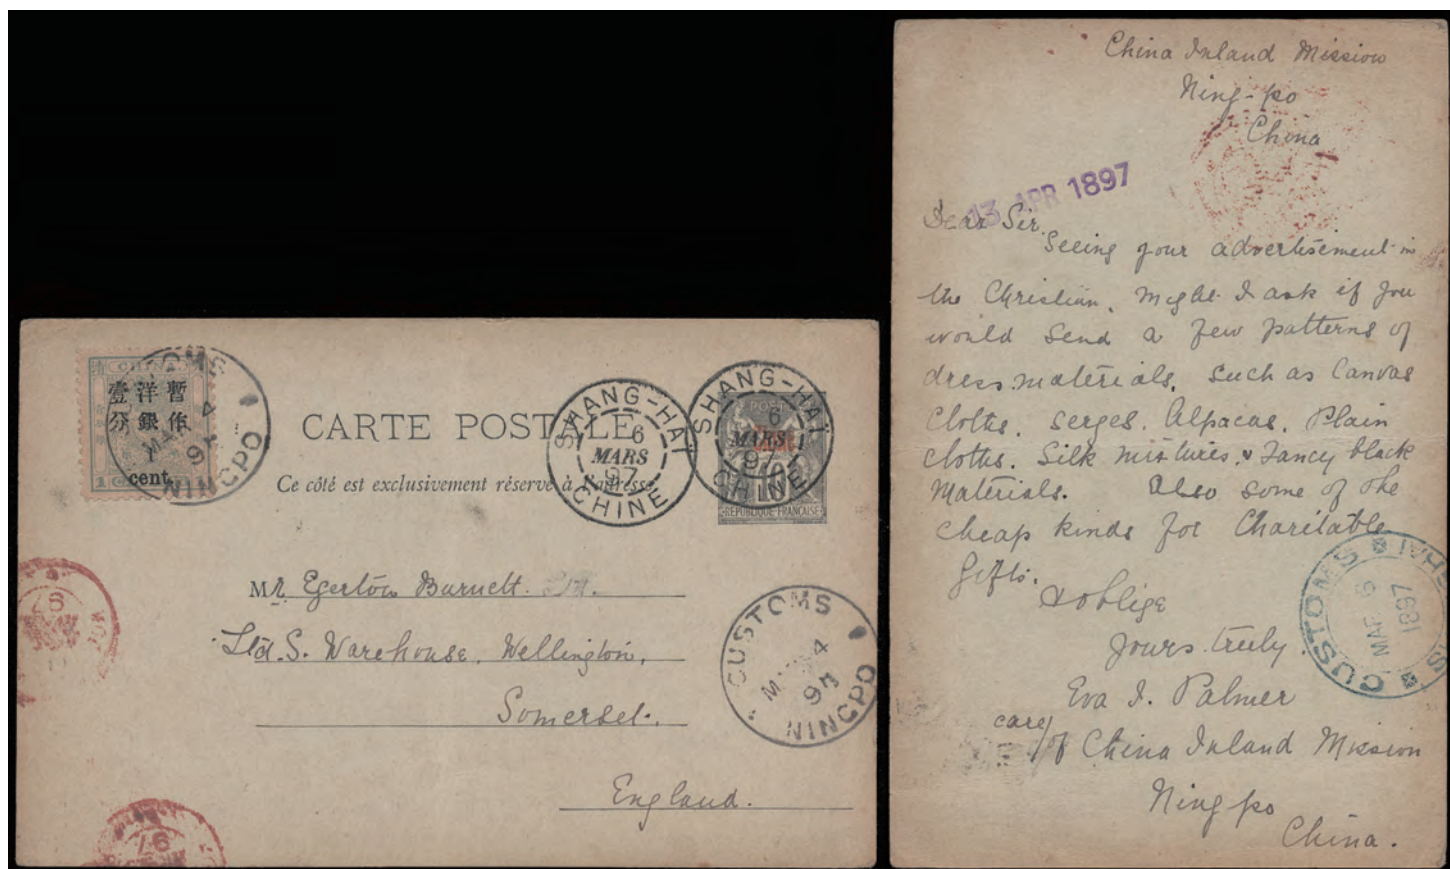 CHINA
暫洋壹
作銀分
1
cent.
1
CUSTOMS
4
97
NINGPO
CARTE POSTALE
Ce côté est exclusivement réservé à l'adresse
SHANG-HAÏ
6
MARS
97
CHINE
SHANG-HAÏ
6
MARS
97
CHINE
10
REPUBLIQUE FRANÇAISE
Mr Egerton Burnett.
Ltd. S. Warehouse, Wellington,
Somerset.
England.
CUSTOMS
4
97
NINGPO
97
China Inland Mission
Ning-po
China
13 APR 1897
Dear Sir.
Seeing your advertisement in
the Christian, might I ask if you
would send a few patterns of
dress materials, such as Canvas
Cloths, Serges, Alpacas, Plain
cloths, Silk mixtures, & Fancy black
Materials. Also some of the
cheap kinds for Charitable
Gifts.
& oblige
Yours truly
Eva I. Palmer
care/of China Inland Mission
Ningpo
China.
CUSTOMS
MAR 6
1897